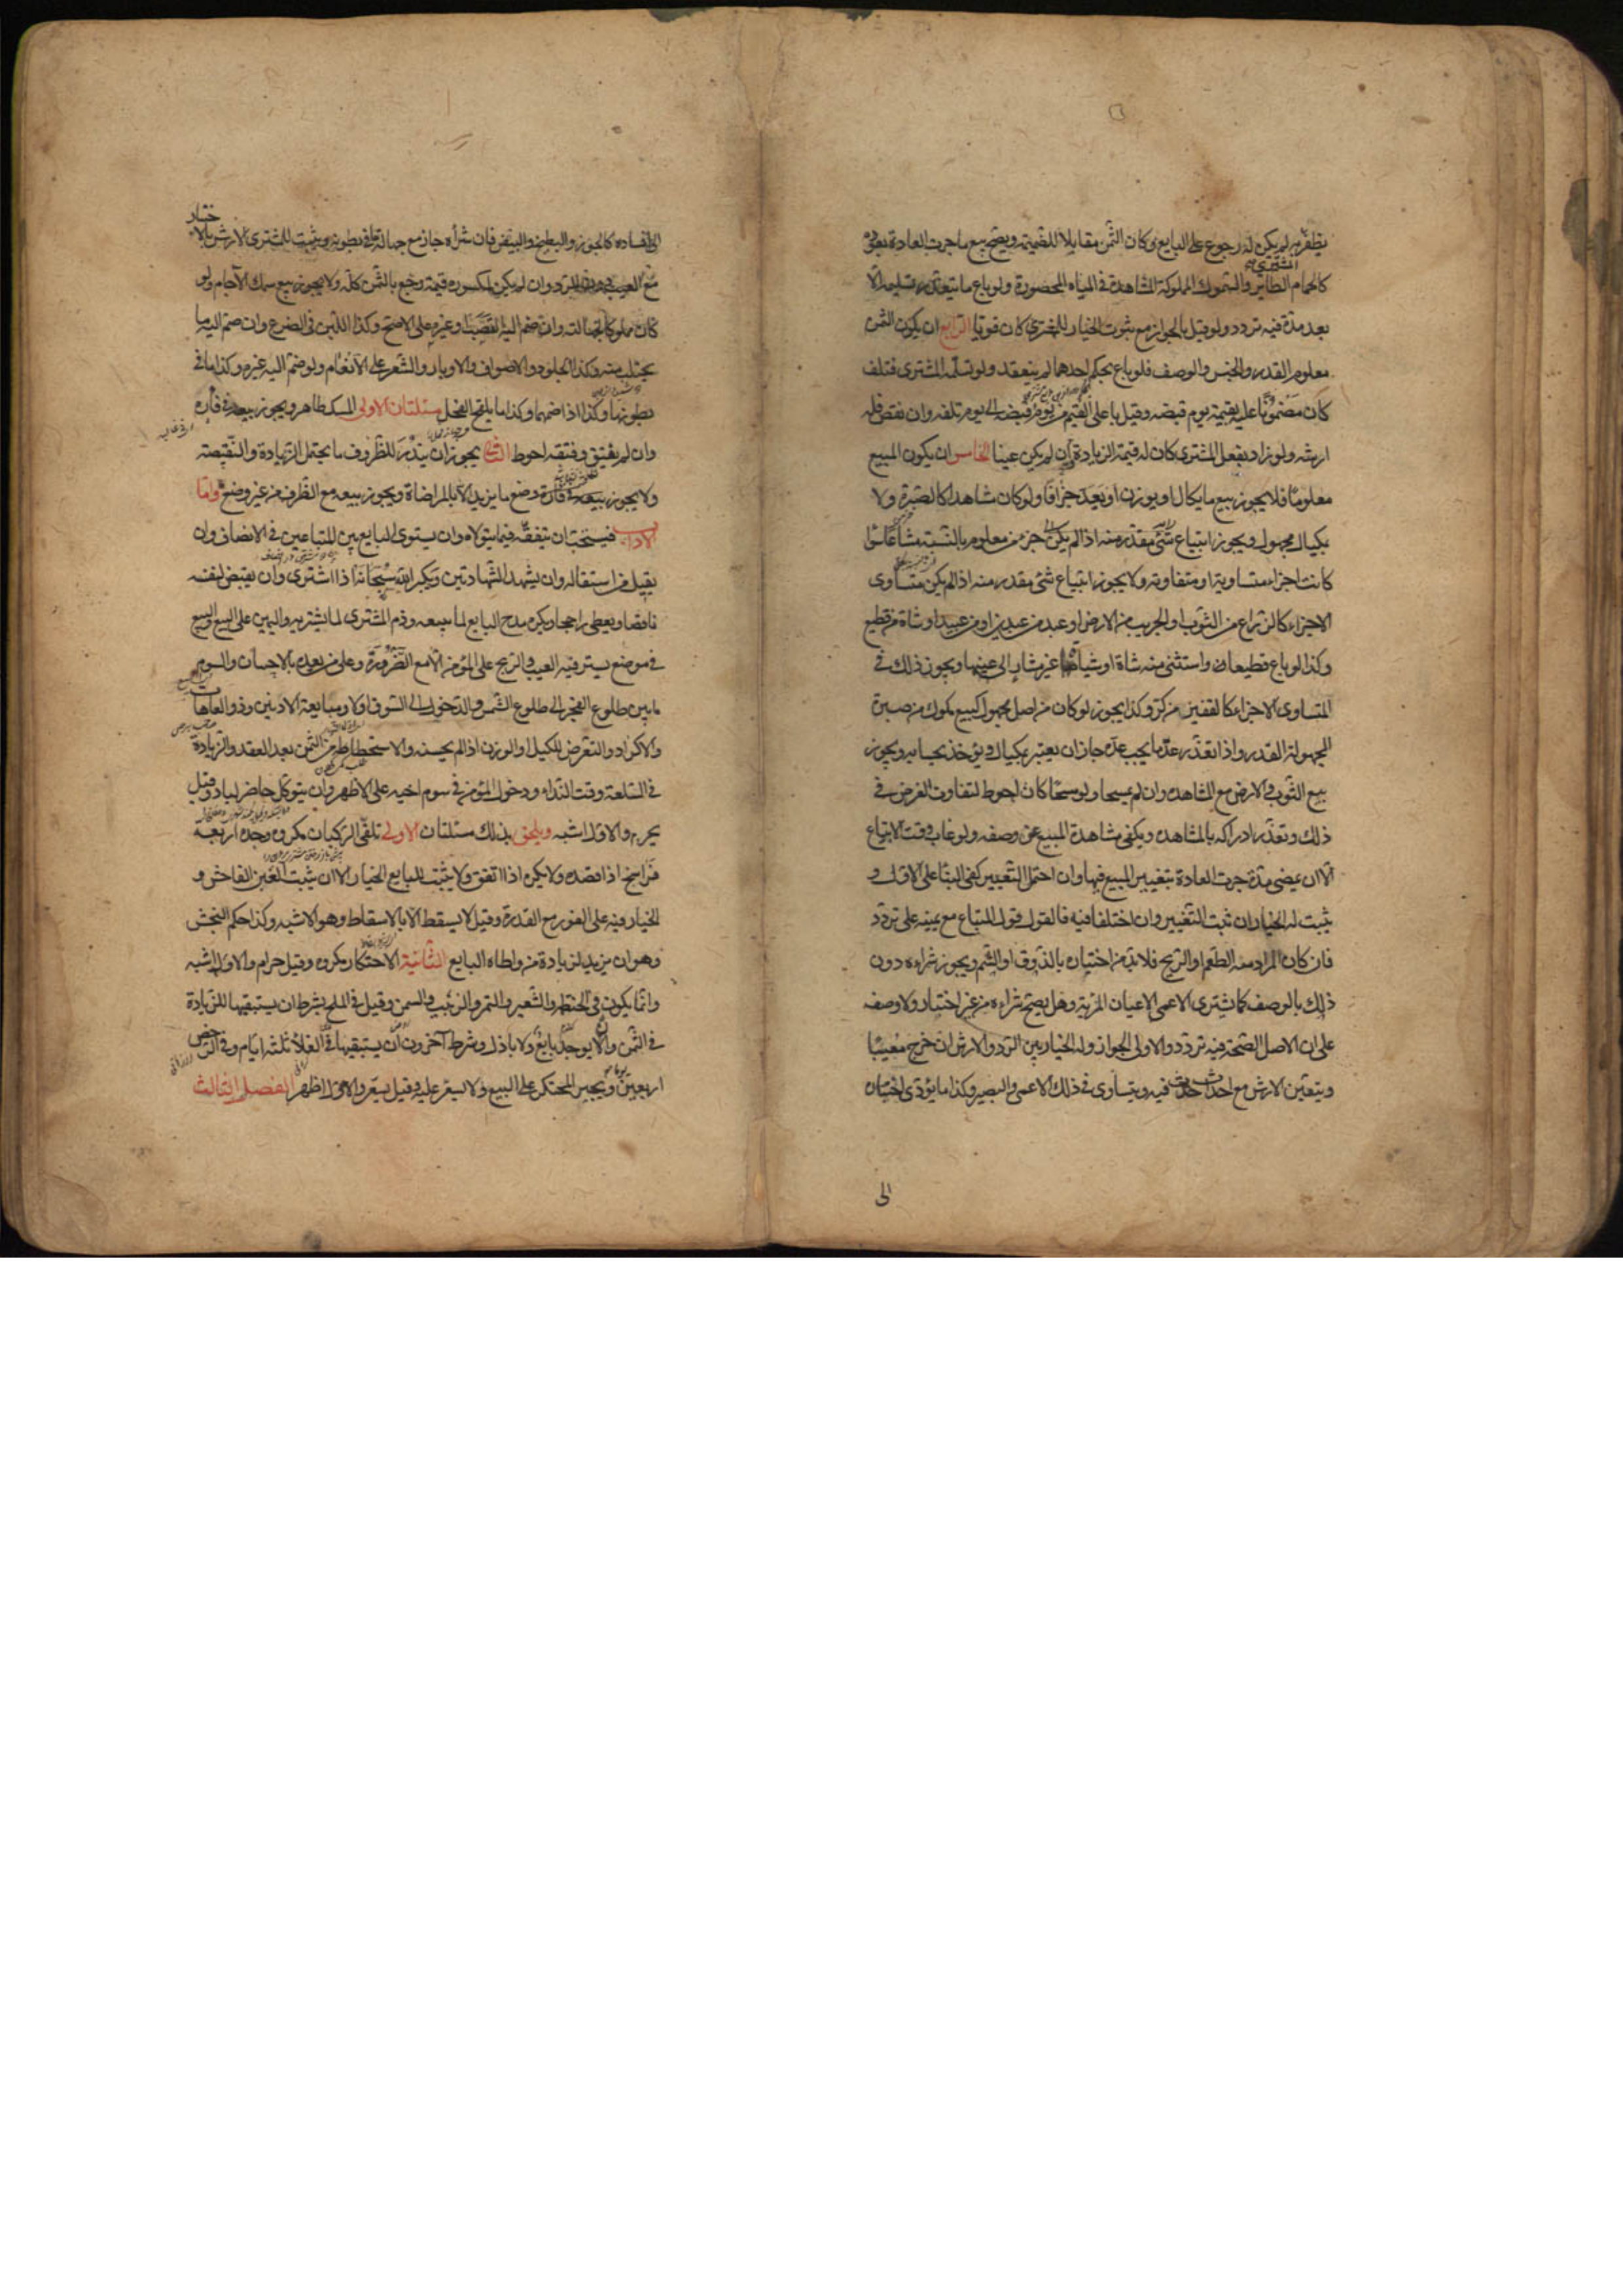 يظفر به لم يكن له رجوع على البايع وكان الثمن مقابلا للضميمة ويصح بيع ما جرت العادة بعوده
كالحمام الطاير والسموك المملوكة المشاهدة في المياه المحصورة ولو باع ما يتعذر تسليمه الا
بعد مدة فيه تردد ولو قيل بالجواز مع ثبوت الخيار للمشتري كان قويا الرابع ان يكون الثمن
معلوم القدر والجنس والوصف فلو باع بحكم احدهما لم ينعقد ولو تسلمه المشتري فتلف
كان مضمونا عليه بقيمته يوم قبضه وقيل باعلى القيم من يوم قبضه الى يوم تلفه وان نقص فله
ارشه ولو زاد بفعل المشتري كان له قيمة الزيادة وان لم يكن عينا الخامس ان يكون المبيع
معلوما فلا يجوز بيع ما يكال او يوزن او يعد جزافا ولو كان مشاهدا كالصبرة ولا
بمكيال مجهول ويجوز ابتياع جزء من معلوم بالنسبة مشاعا سواء
كانت اجزاءه متساوية او متفاوتة ولا يجوز ابتياع شئ مقدر منه اذا لم يكن متساوى
الاجزاء كالذراع من الثوب او الجريب من الارض او عبد من عبدين او من عبيد او شاة من قطيع
وكذا لو باع قطيعا واستثنى منه شاة او شياها غير مشار الى عينها ويجوز ذلك في
المتساوى الاجزاء كالقفيز من كر وكذا يجوز لو كان من اصل مجهول كبيع مكوك من صبرة
المجهولة القدر واذا تعذر عد ما يجب عده جاز ان يعتبر بمكيال ويؤخذ بحسابه ويجوز
بيع الثوب والارض مع المشاهدة وان لم يمسحا ولو مسحا كان احوط لتفاوت الغرض في
ذلك وتعذر ادراكه بالمشاهده ويكفى مشاهدة المبيع عن وصفه ولو غاب وقت الابتياع
الا ان يمضى مدة جرت العادة بتغيير المبيع فيها وان احتمل التغيير كفى البناء على الاول و
يثبت له الخيار ان ثبت التغيير وان اختلفا فيه فالقول قول المبتاع مع يمينه على تردد
فان كان المراد منه الطعم او الريح فلا بد من اختباره بالذوق او الشم ويجوز شراءه دون
ذلك بالوصف كما يشترى الاعمى الاعيان المرئية وهل يصح شراءه من غير اختبار ولا وصف
على ان الاصل الصحة فيه تردد والاولى الجواز وله الخيار بين الرد والارش ان خرج معيبا
ويتعين الارش مع احداث حدث فيه ويتساوى في ذلك الاعمى والبصير وكذا ما يؤدى اختباره
الى
الى افساده كالجوز والبطيخ والبيض فان شراءه جاز مع جهالة ما في بطونه ويثبت للمشترى الارش بالاختبار
مع العيب دون الرد وان لم يكن لمكسوره قيمة رجع بالثمن كله ولا يجوز بيع سمك الآجام ولو
كان مملوكا لجهالته وان ضم اليه القصب او غيره على الاصح وكذا اللبن في الضرع وان ضم اليه ما
يحتلب منه وكذا الجلود والاصواف والاوبار والشعر على الانعام ولو ضم اليه غيره وكذا ما في
بطونها وكذا اذا ضمهما وكذا ما يلقح الفحل مسئلتان الاولى المسك طاهر ويجوز بيعه في فاره
وان لم يفتق وفتقه احوط الثانى يجوز ان يندر للظروف ما يحتمل الزيادة والنقيصة
ولا يجوز وضع ما يزيد الا بالمراضاة ويجوز بيعه مع الظرف من غير وضع واما
الاداب فيستحب ان يتفقه فيما يتولاه وان يستوى البايع بين المتبايعين في الانصاف وان
يقيل من استقاله وان يشهد الشهادتين ويكبر الله سبحانه اذا اشترى وان يقبض لنفسه
ناقصا ويعطى راجحا ويكره مدح البايع لما يبيعه وذم المشترى لما يشتريه واليمين على البيع والبيع
في موضع يستر فيه العيب والربح على المؤمن الا مع الضرورة وعلى من يعده بالاحسان والسوم
ما بين طلوع الفجر الى طلوع الشمس والدخول الى السوق اولا ومبايعة الادنين وذو العاهات
والاكراد والتعرض للكيل او الوزن اذا لم يحسنه والاستحطاط من الثمن بعد العقد والزيادة
في السلعة وقت النداء ودخول المؤمن في سوم اخيه على الاظهر وان يتوكل حاضر لباد وقيل
يحرم والاول اشبه ويلحق بذلك مسئلتان الاولى تلقى الركبان مكروه وحده اربعة
فراسخ اذا قصده ولا يكره اذا اتفق ولا يثبت للبايع الخيار الا ان يثبت الغبن الفاحش و
الخيار فيه على الفور مع القدرة وقيل لا يسقط الا بالاسقاط وهو الاشبه وكذا حكم النجش
وهو ان يزيد لزيادة من واطاه البايع الثانية الاحتكار مكروه وقيل حرام والاول اشبه
وانما يكون في الحنطة والشعير والتمر والزبيب والسمن وقيل في الملح بشرط ان يستبقيها للزيادة
في الثمن ولا يوجد بايع ولا باذل وشرط آخرون ان يستبقيها في الغلاء ثلثة ايام وفي الرخص
اربعين ويجبر المحتكر على البيع ولا يسعر عليه وقيل يسعر والاول اظهر الفصل الثالث